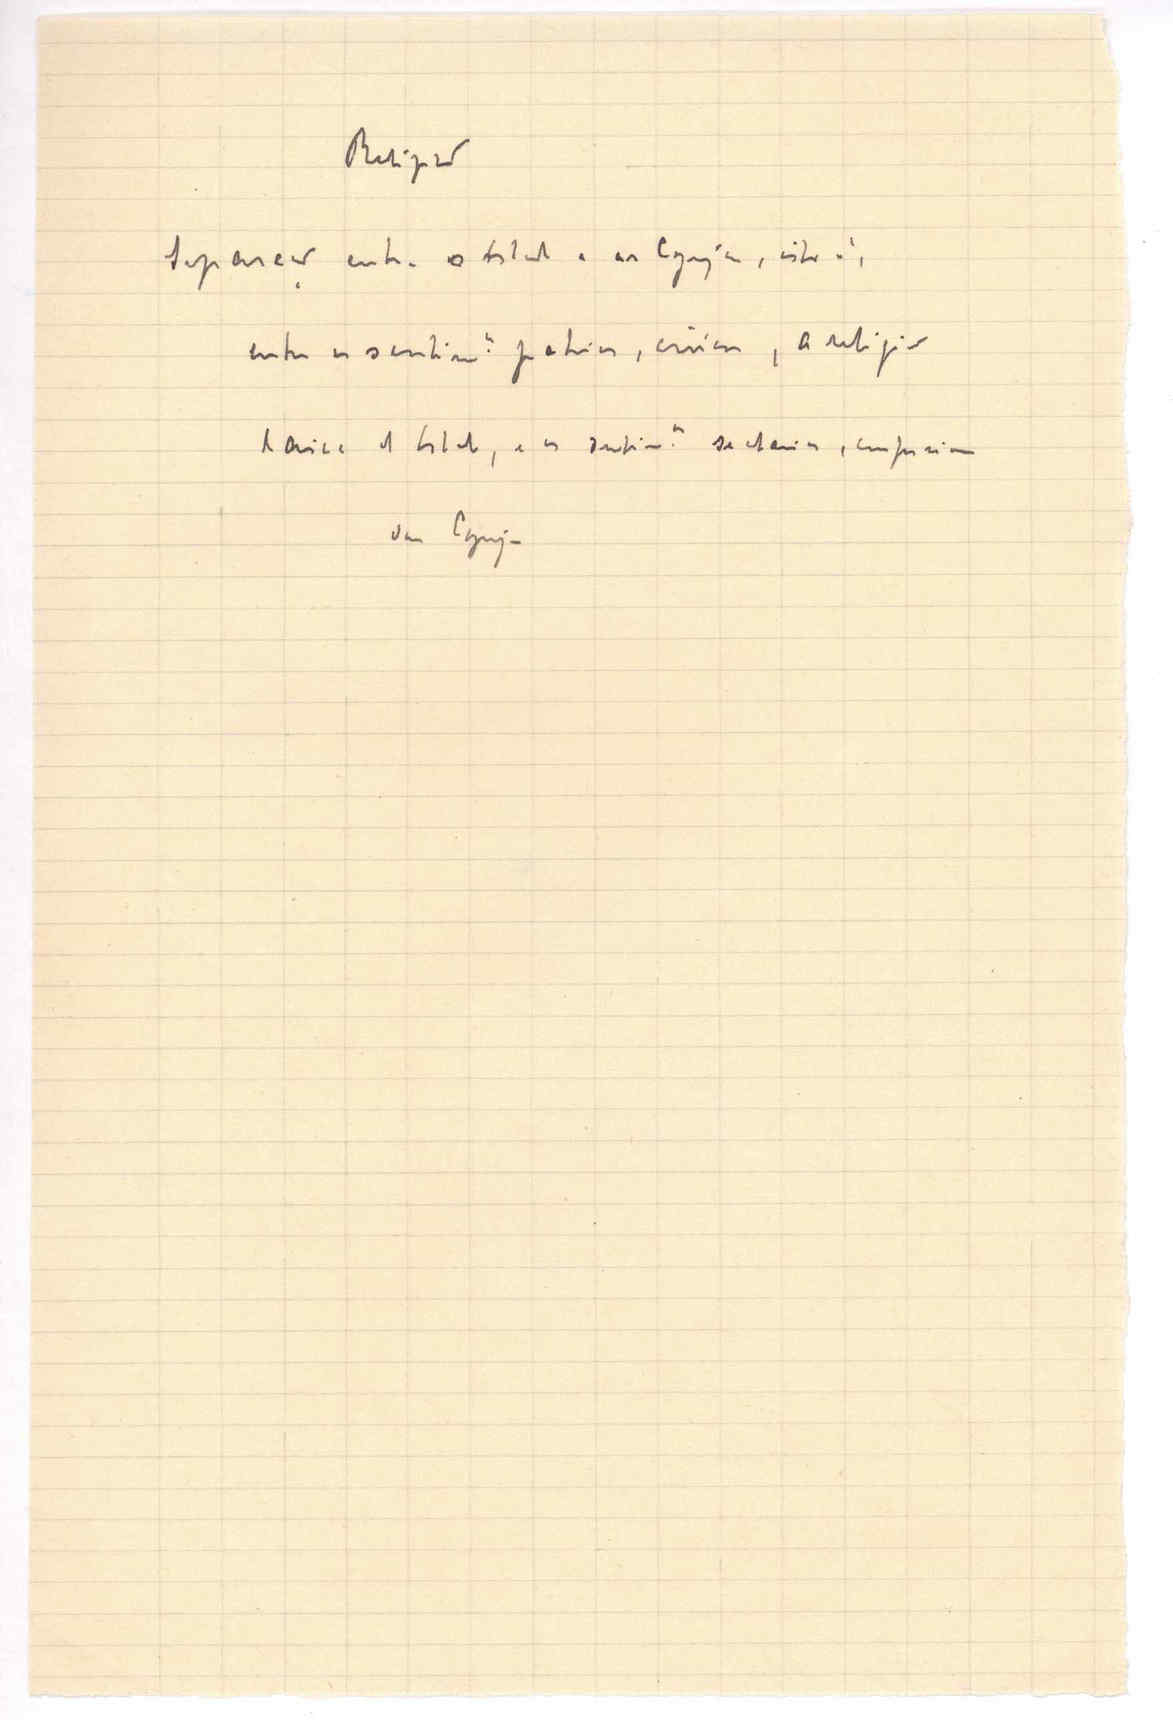 Religião
Separação entre o Estado e as Egrejas, isto é,
entre os sentim.os patrios, civicos, a religião
do Estado, e os sentim.os sectarios,
das Egrejas